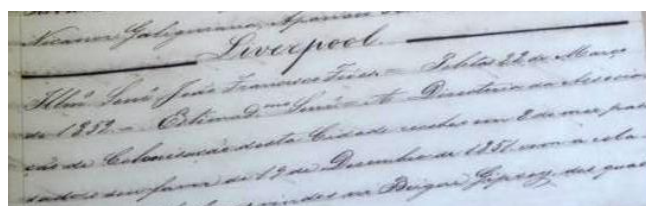 Liverpool
Illmo Senr João Francisco Froes = Pelotas 22 de Março
de 1852 = Estimad.mo Senr = A Directoria da Associa
ção de Colonisação desta Cidade recebeo em 8 de mez pas
sado o seu favor de 19 de Dezembro de 1851 com a rela
vindos no Brigue Gipsey, dos quaes